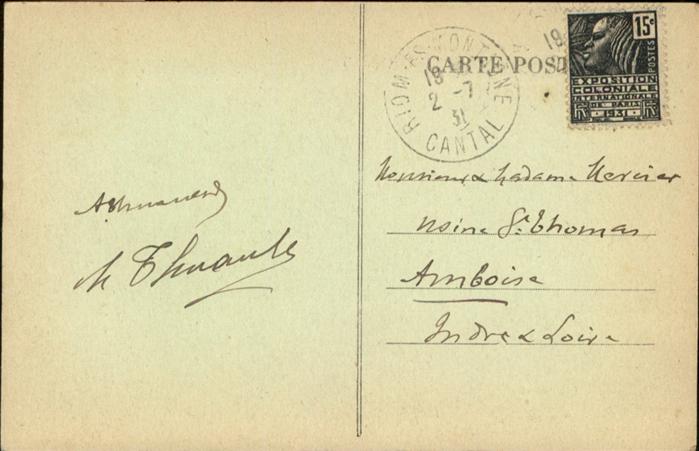 CARTE POST
RIOM-ES-MONTAGNE
18
2 -7
31
CANTAL
18
15c
POSTES
EXPOSITION
COLONIALE
INTERNATIONALE
DE PARIS
1931
Monsieur & Madame Mercier
Usine St Thomas
Amboise
Indre & Loire
M